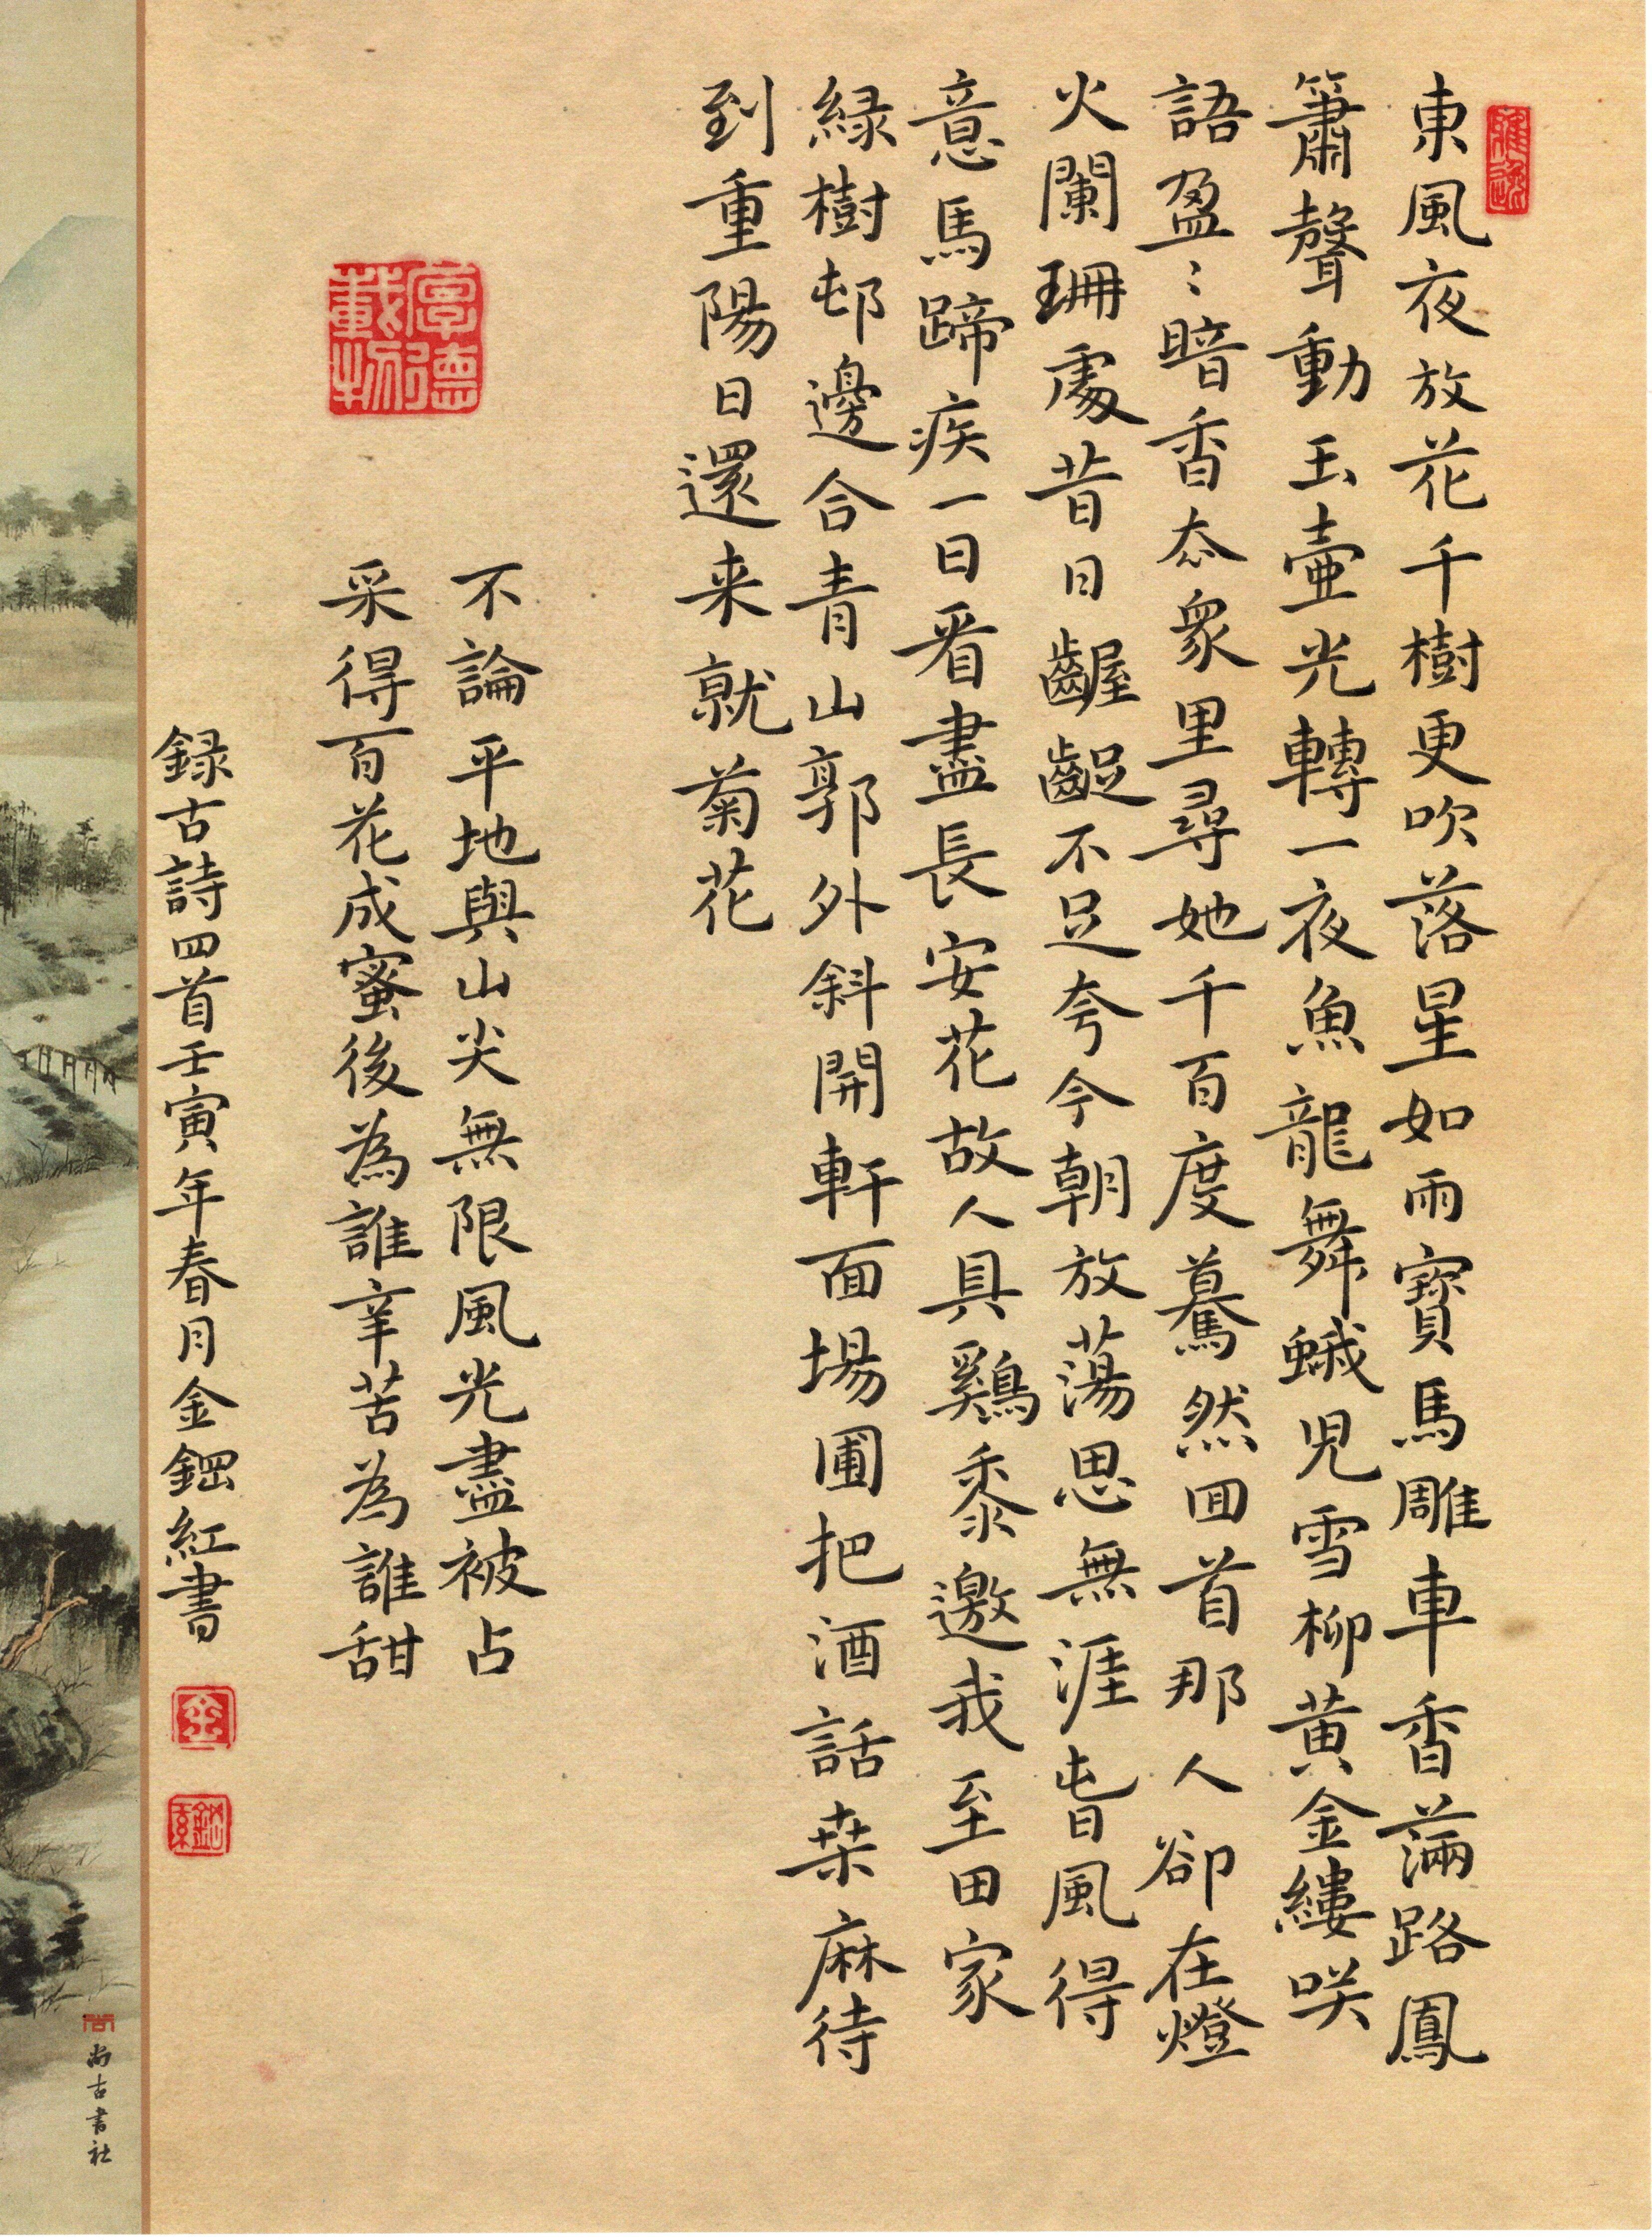 雅逸
東風夜放花千樹更吹落星如雨寶馬雕車香滿路鳳
簫聲動玉壺光轉一夜魚龍舞蛾兒雪柳黄金縷咲
語盈〻暗香厺衆里尋她千百度驀然回首那人卻在燈
火闌珊處昔日齷齪不足夸今朝放蕩思無涯旾風得
意馬蹄疾一日看盡長安花故人具鷄黍邀我至田家
緑樹邨邊合青山郭外斜開軒面場圃把酒話桒麻待
到重陽日還来就菊花
厚德載物
不論平地與山尖無限風光盡被占
采得百花成蜜後為誰辛苦為誰甜
録古詩四首壬寅年春月金鋼紅書
金
尚古書社